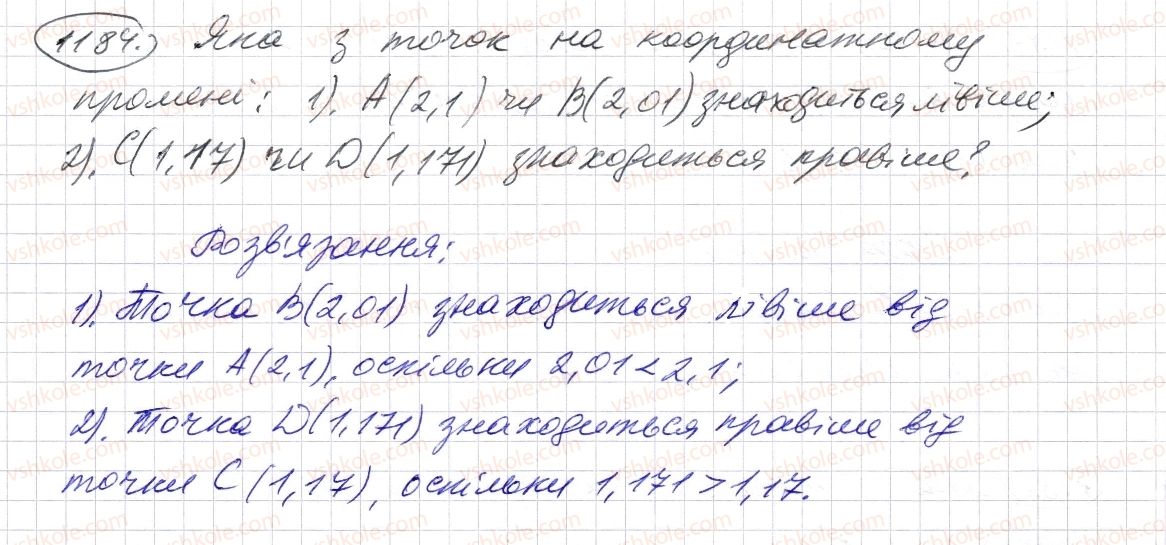 1184. Яка з точок на координатному
промені: 1). А(2,1) чи В(2,01) знаходиться лівіше;
2). С(1,17) чи D(1,171) знаходиться правіше?
Розв'язання:
1). Точка В(2,01) знаходиться лівіше від
точки А(2,1), оскільки 2,01 < 2,1;
2). Точка D(1,171) знаходиться правіше від
точки С(1,17), оскільки 1,171 > 1,17.